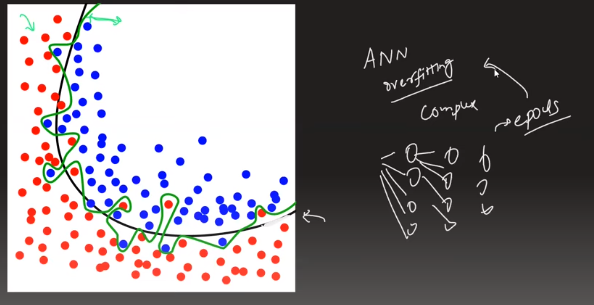 ANN
overfitting
Complex
→ epochs